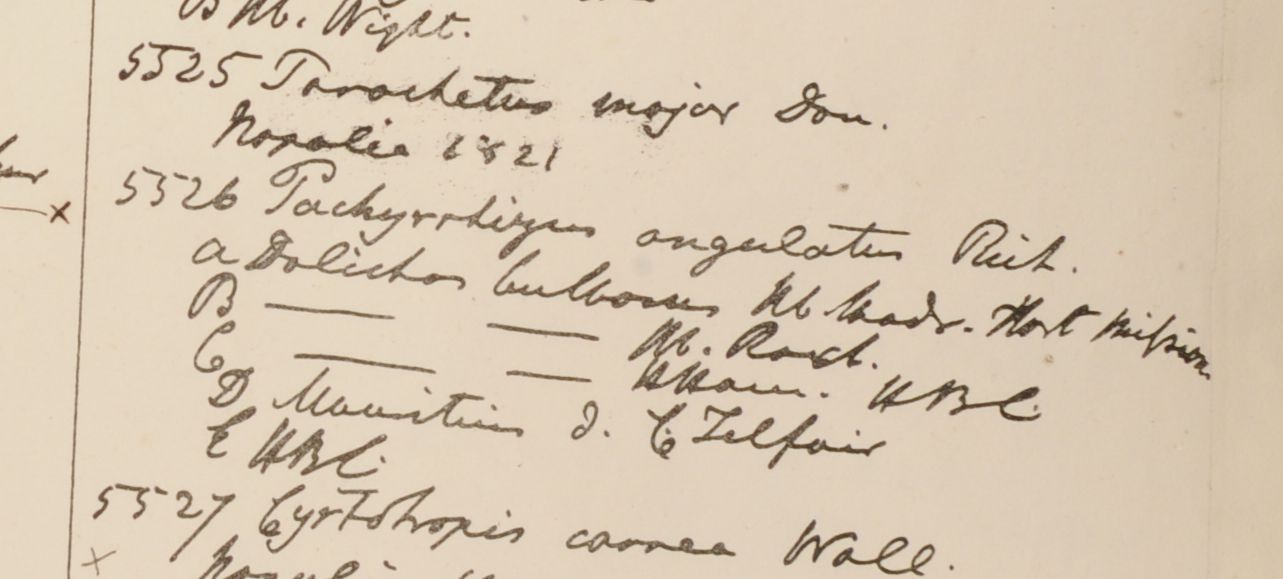 B Hb. Wight.
5525 Parochetus major Don.
Napalia 1821
5526 Pachyrrhizus angulatus Rich.
a Dolichos bulbosus Hb Madr. Hort Mission
B — — Hb. Roxb.
C — — HHam. HBC
D Mauritius d. C. Telfair
E HBC.
5527 Cyrtotropis carnea Wall.
x
x